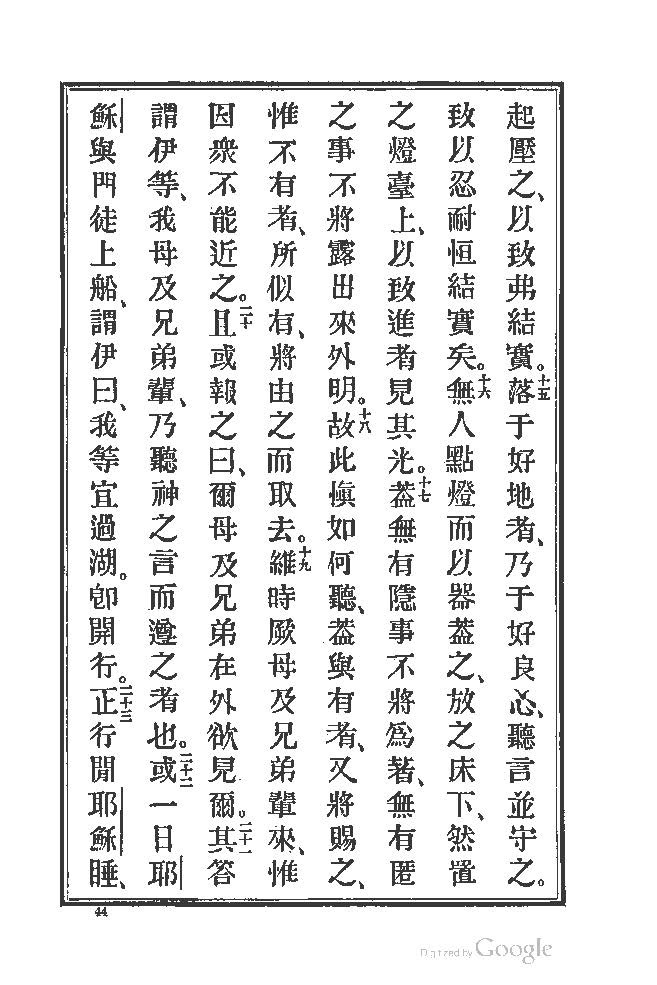 起壓之、以致弗結實。十五落于好地者、乃于好良心、聽言並守之。
致以忍耐恒結實矣。十六無人點燈而以器葢之、放之床下、然置
之燈臺上、以致進者見其光。十七葢無有隱事不將為著、無有匿
之事不將露出來外明。十八故此慎如何聽、葢與有者、又將賜之、
惟不有者、所似有、將由之而取去。十九維時厥母及兄弟輩來、惟
因衆不能近之。二十且或報之曰、爾母及兄弟在外欲見爾。二十一其答
謂伊等、我母及兄弟輩、乃聽神之言而遵之者也。二十二或一日耶
穌與門徒上船、謂伊曰、我等宜過湖。卽開行。二十三正行間耶穌睡、
44
Digitized by Google